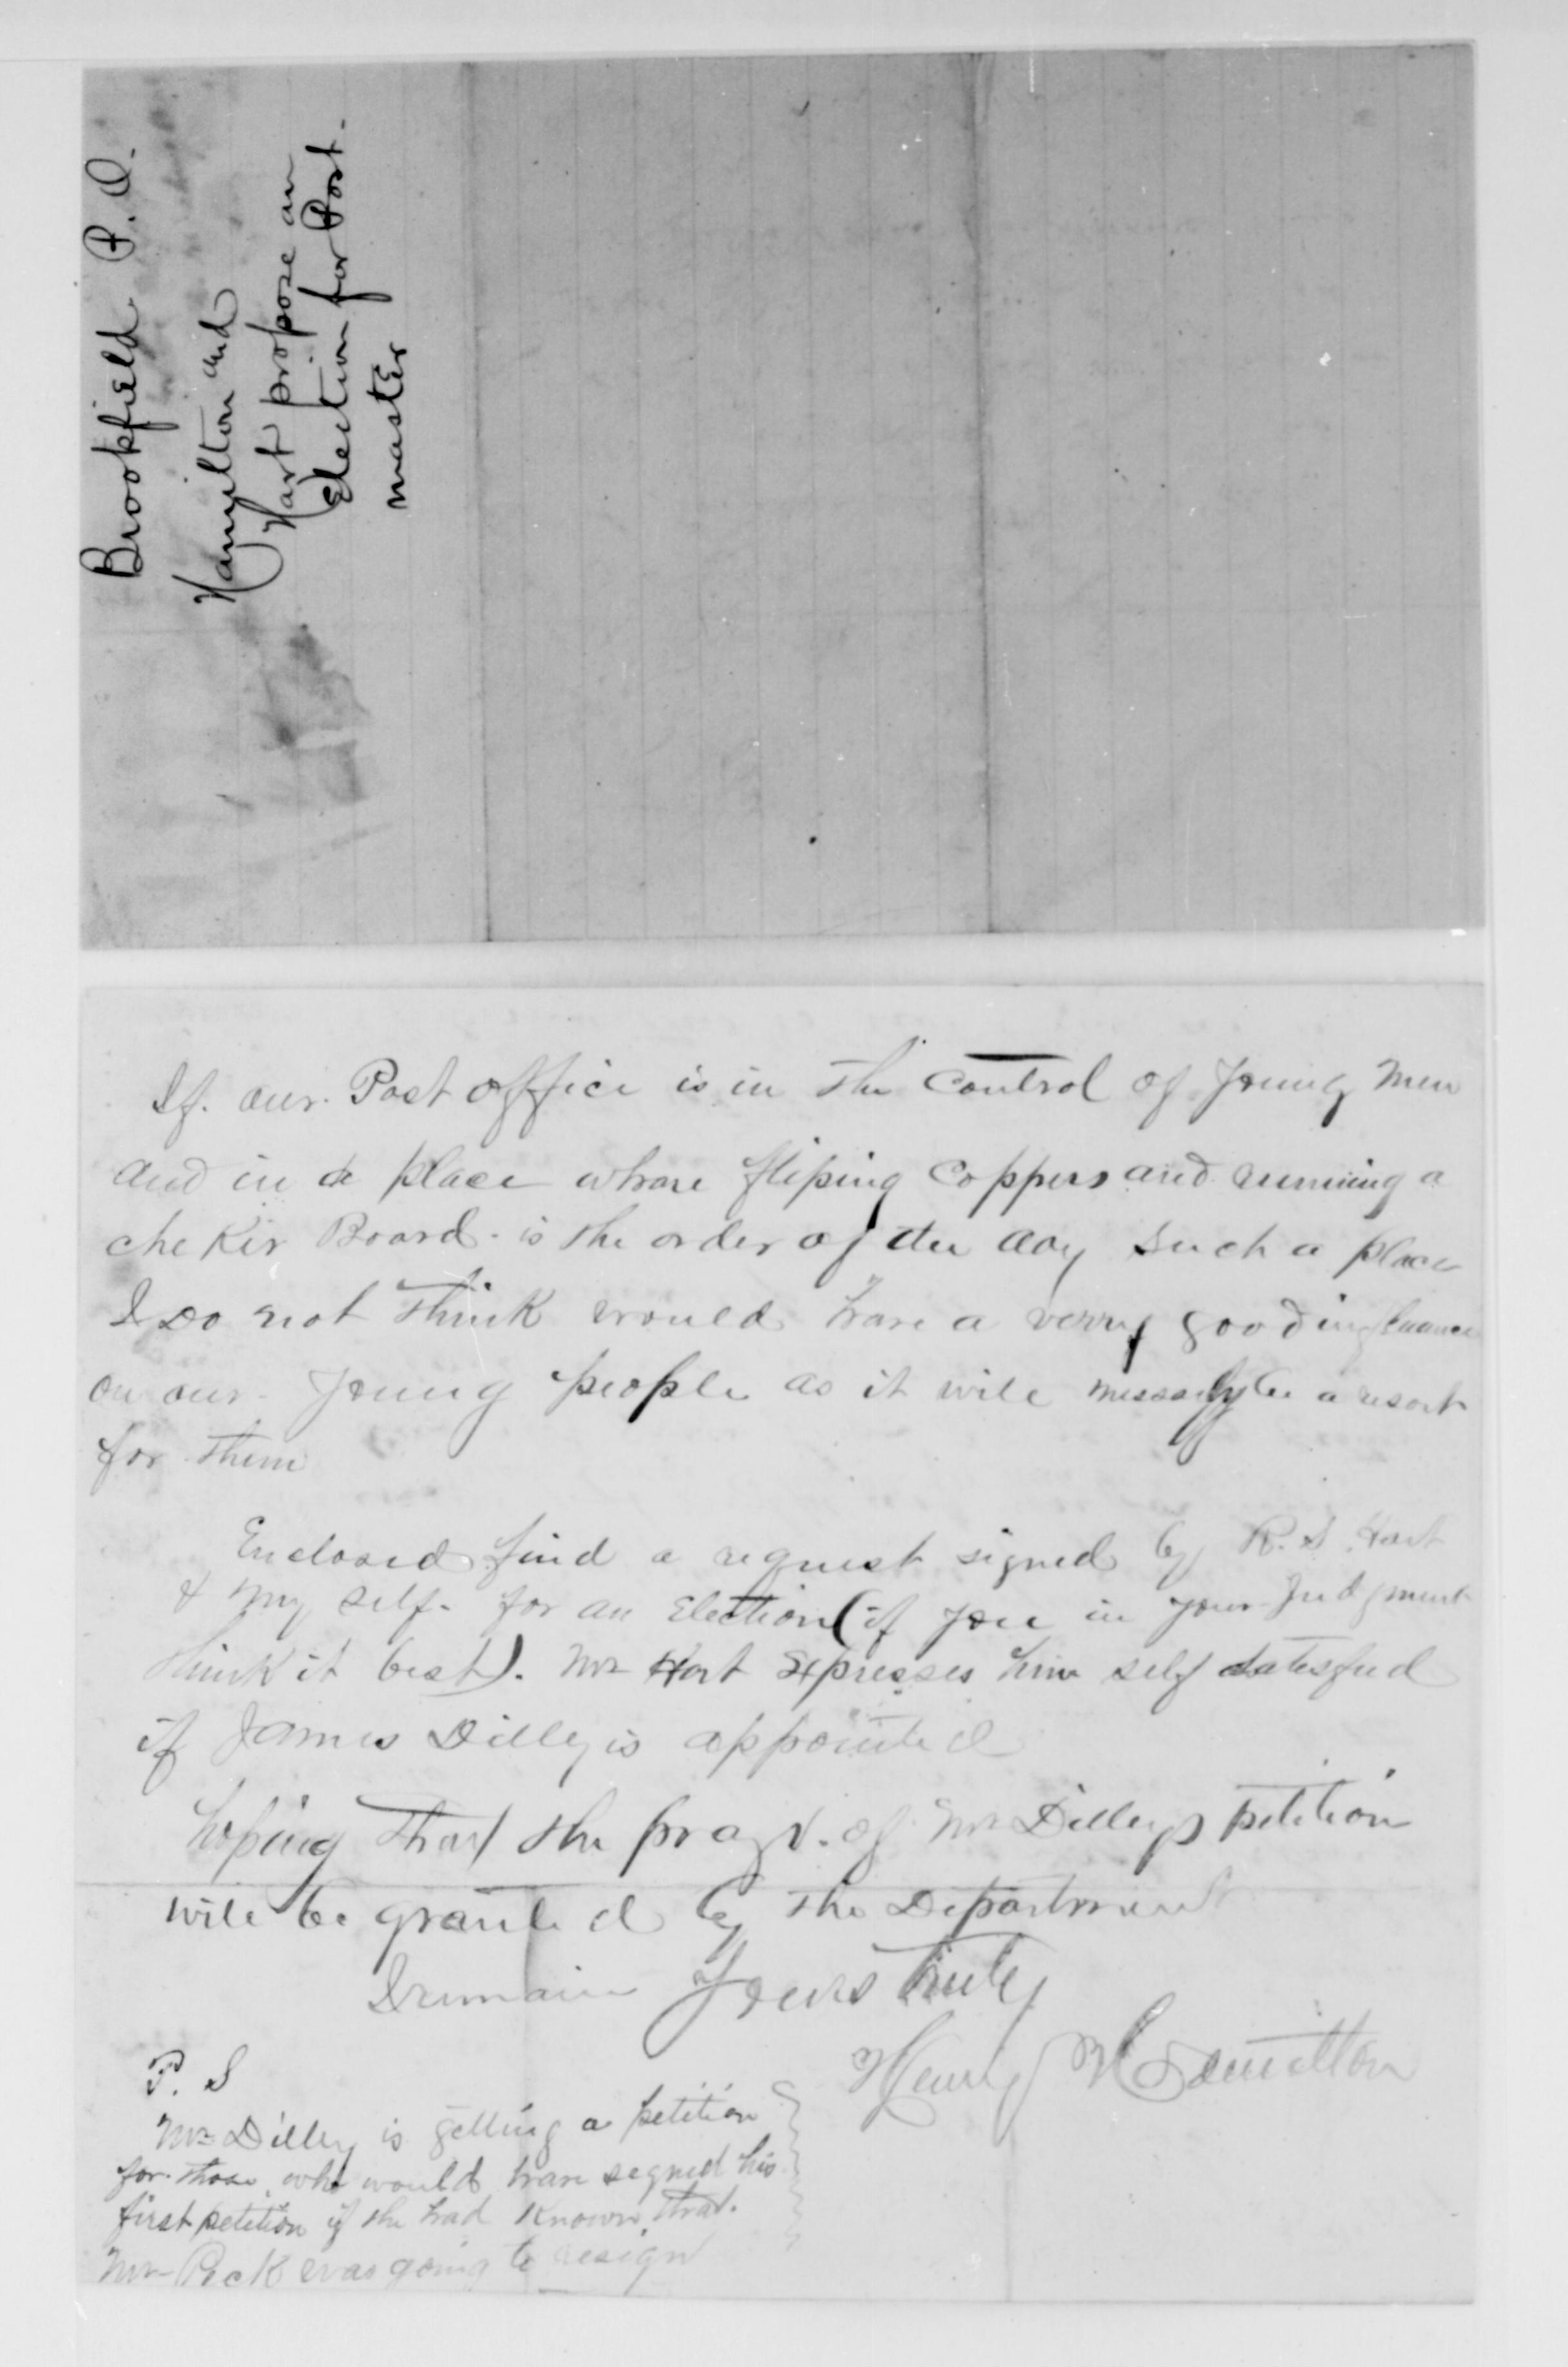 Brookfield P. O.
Hamilton and
Hart propose an
Election for Post-
master
If. our. Post office is in the Control of Young Men
and in a place whare fliping Coppers and running a
cheker Board - is the order of the day Such a place
I Do not think would have a verry good influance
on our - young people as it will be a resort
for them
Enclosed find a request signed by R. S. Hart
& my self - for an Election (if you in your Judgment
think it best). Mr Hart Expresses him self satesfied
if James Dilley is appointed
hoping that the of Mr Dilleys petition
will be granted by the Department
I remain Yours Truly
Henry Hamilton
P. S
Mr Dilley is getting a petition
for those who would have segned his
first petition if the had Known that.
Mr - Peck was going to resign